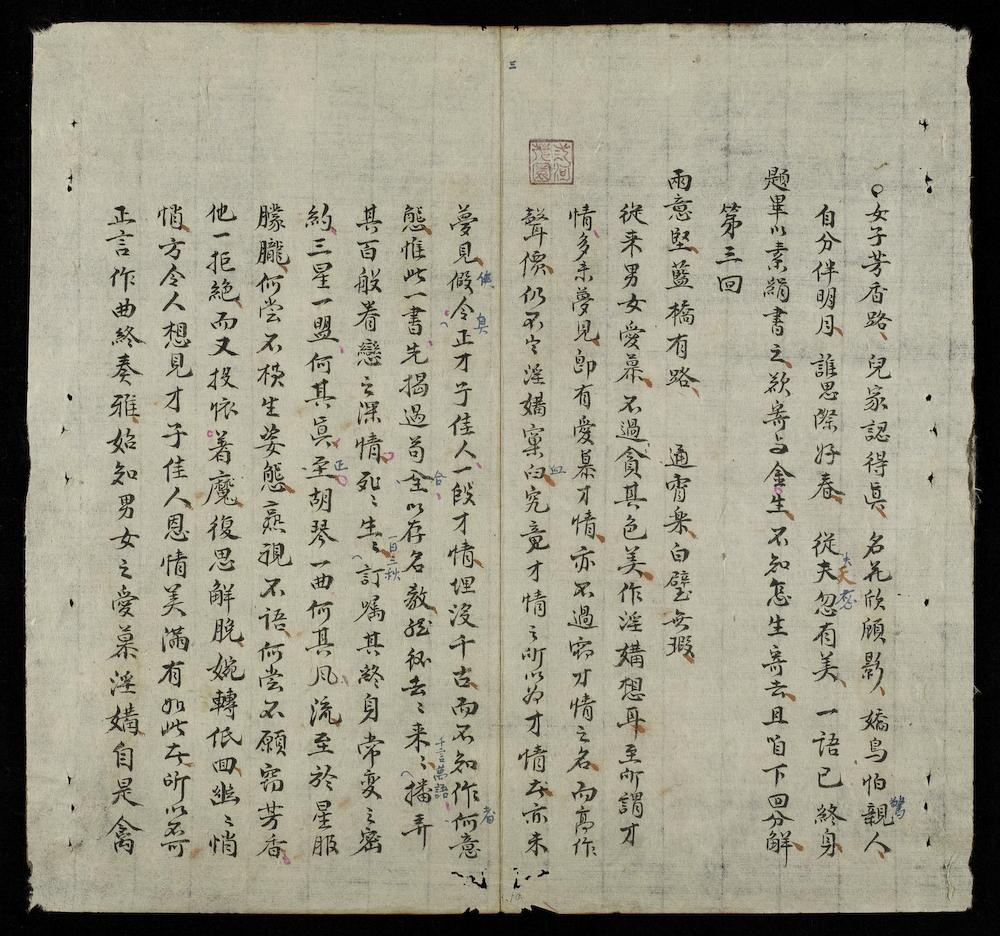 三
○女子芳香路 兒家認得真 名花欣顧影 嬌鳥怕親人
自分伴明月 誰思際好春 從夫忽有美 一語已終身
題畢以素絹書之欲寄与金生不知怎生寄去且聽下回分解
第三回
雨意堅藍橋有路 通宵樂白璧無瑕
從来男女愛慕不過貪其色美作淫媾想耳至所謂才
情多未夢見即有愛慕才情亦不過窃才情之名而高作
聲價仍不定淫媾窠臼究竟才情之所以為才情者亦未
夢見假令正才子佳人一段才情埋没千古而不知作何意
態惟此一書先揭過苟全以存名教後叙去々来々播弄
其百般眷戀之深情死々生々訂嘱其終身常變之密
約三星一盟何其真至胡琴一曲何其風流至於星服
朦朧何嘗不横生姿態熹視不語何嘗不願窃芳香
他一拒絶而又投懷着魔復思解脱婉轉低回幽々悄
悄方令人想見才子佳人恩情美滿有如此者所以不可
正言作曲終奏雅始知男女之愛慕淫媾自是禽
驚
天
愁
真
者
合
千言萬語
一日三秋
正